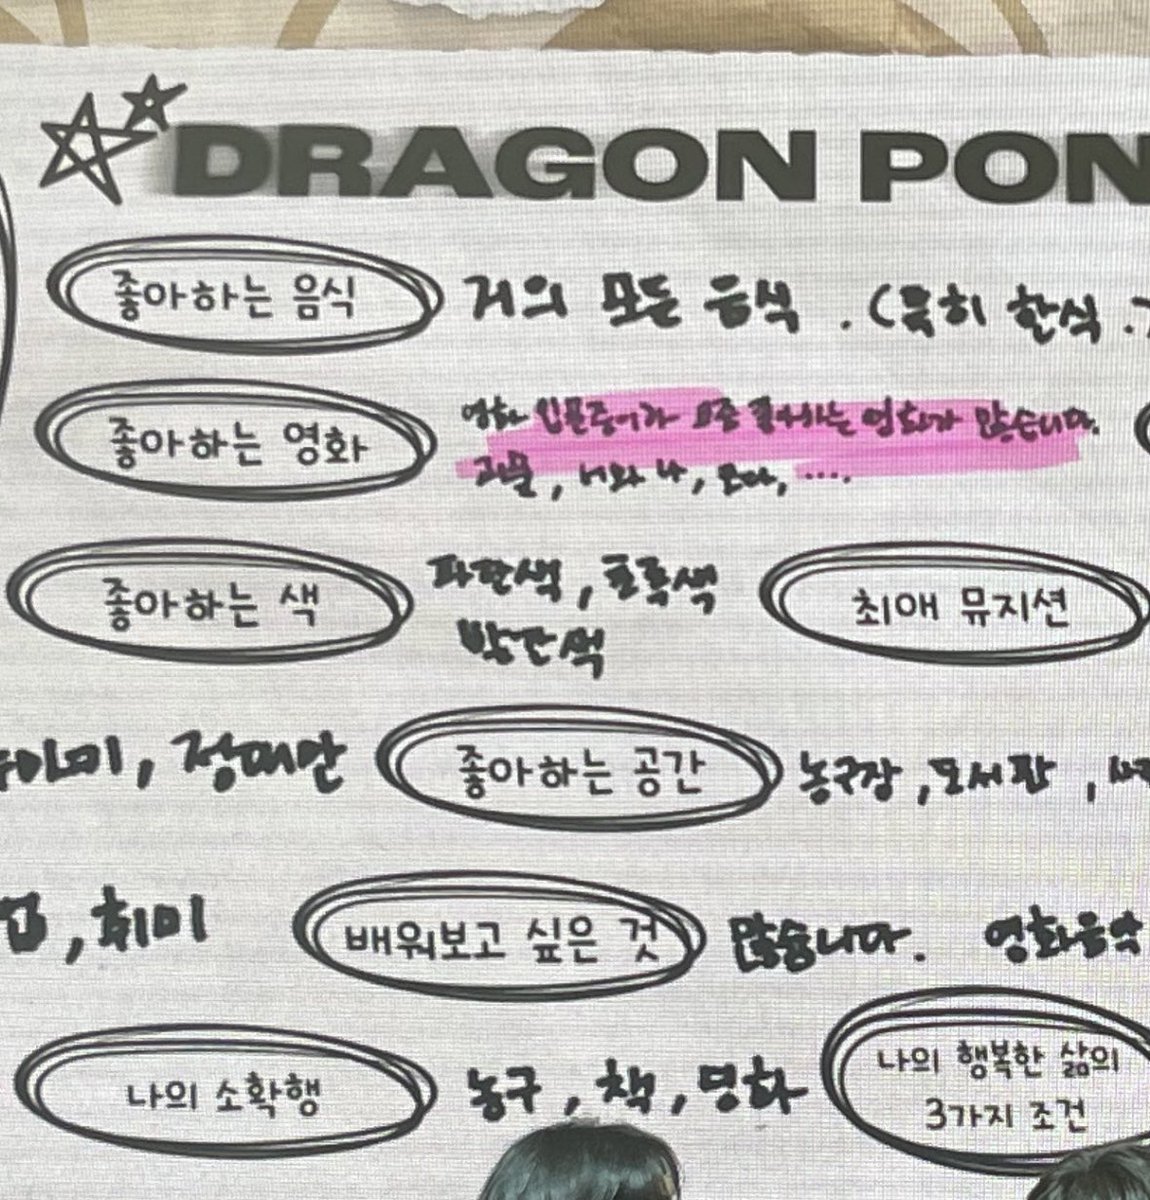 DRAGON PON
좋아하는 음식 거의 모든 음식. (특히 한식.
좋아하는 영화 영화 입문중이라 요즘 좋아하는 영화가 많습니다.
괴물, 너와 나, 모다, ....
좋아하는 색 파란색, 초록색 최애 뮤지션
빨간색
정대만 좋아하는 공간 농구장, 도서관,
, 취미 배워보고 싶은 것 많습니다. 영화음악
나의 소확행 농구, 책, 영화 나의 행복한 삶의
3가지 조건